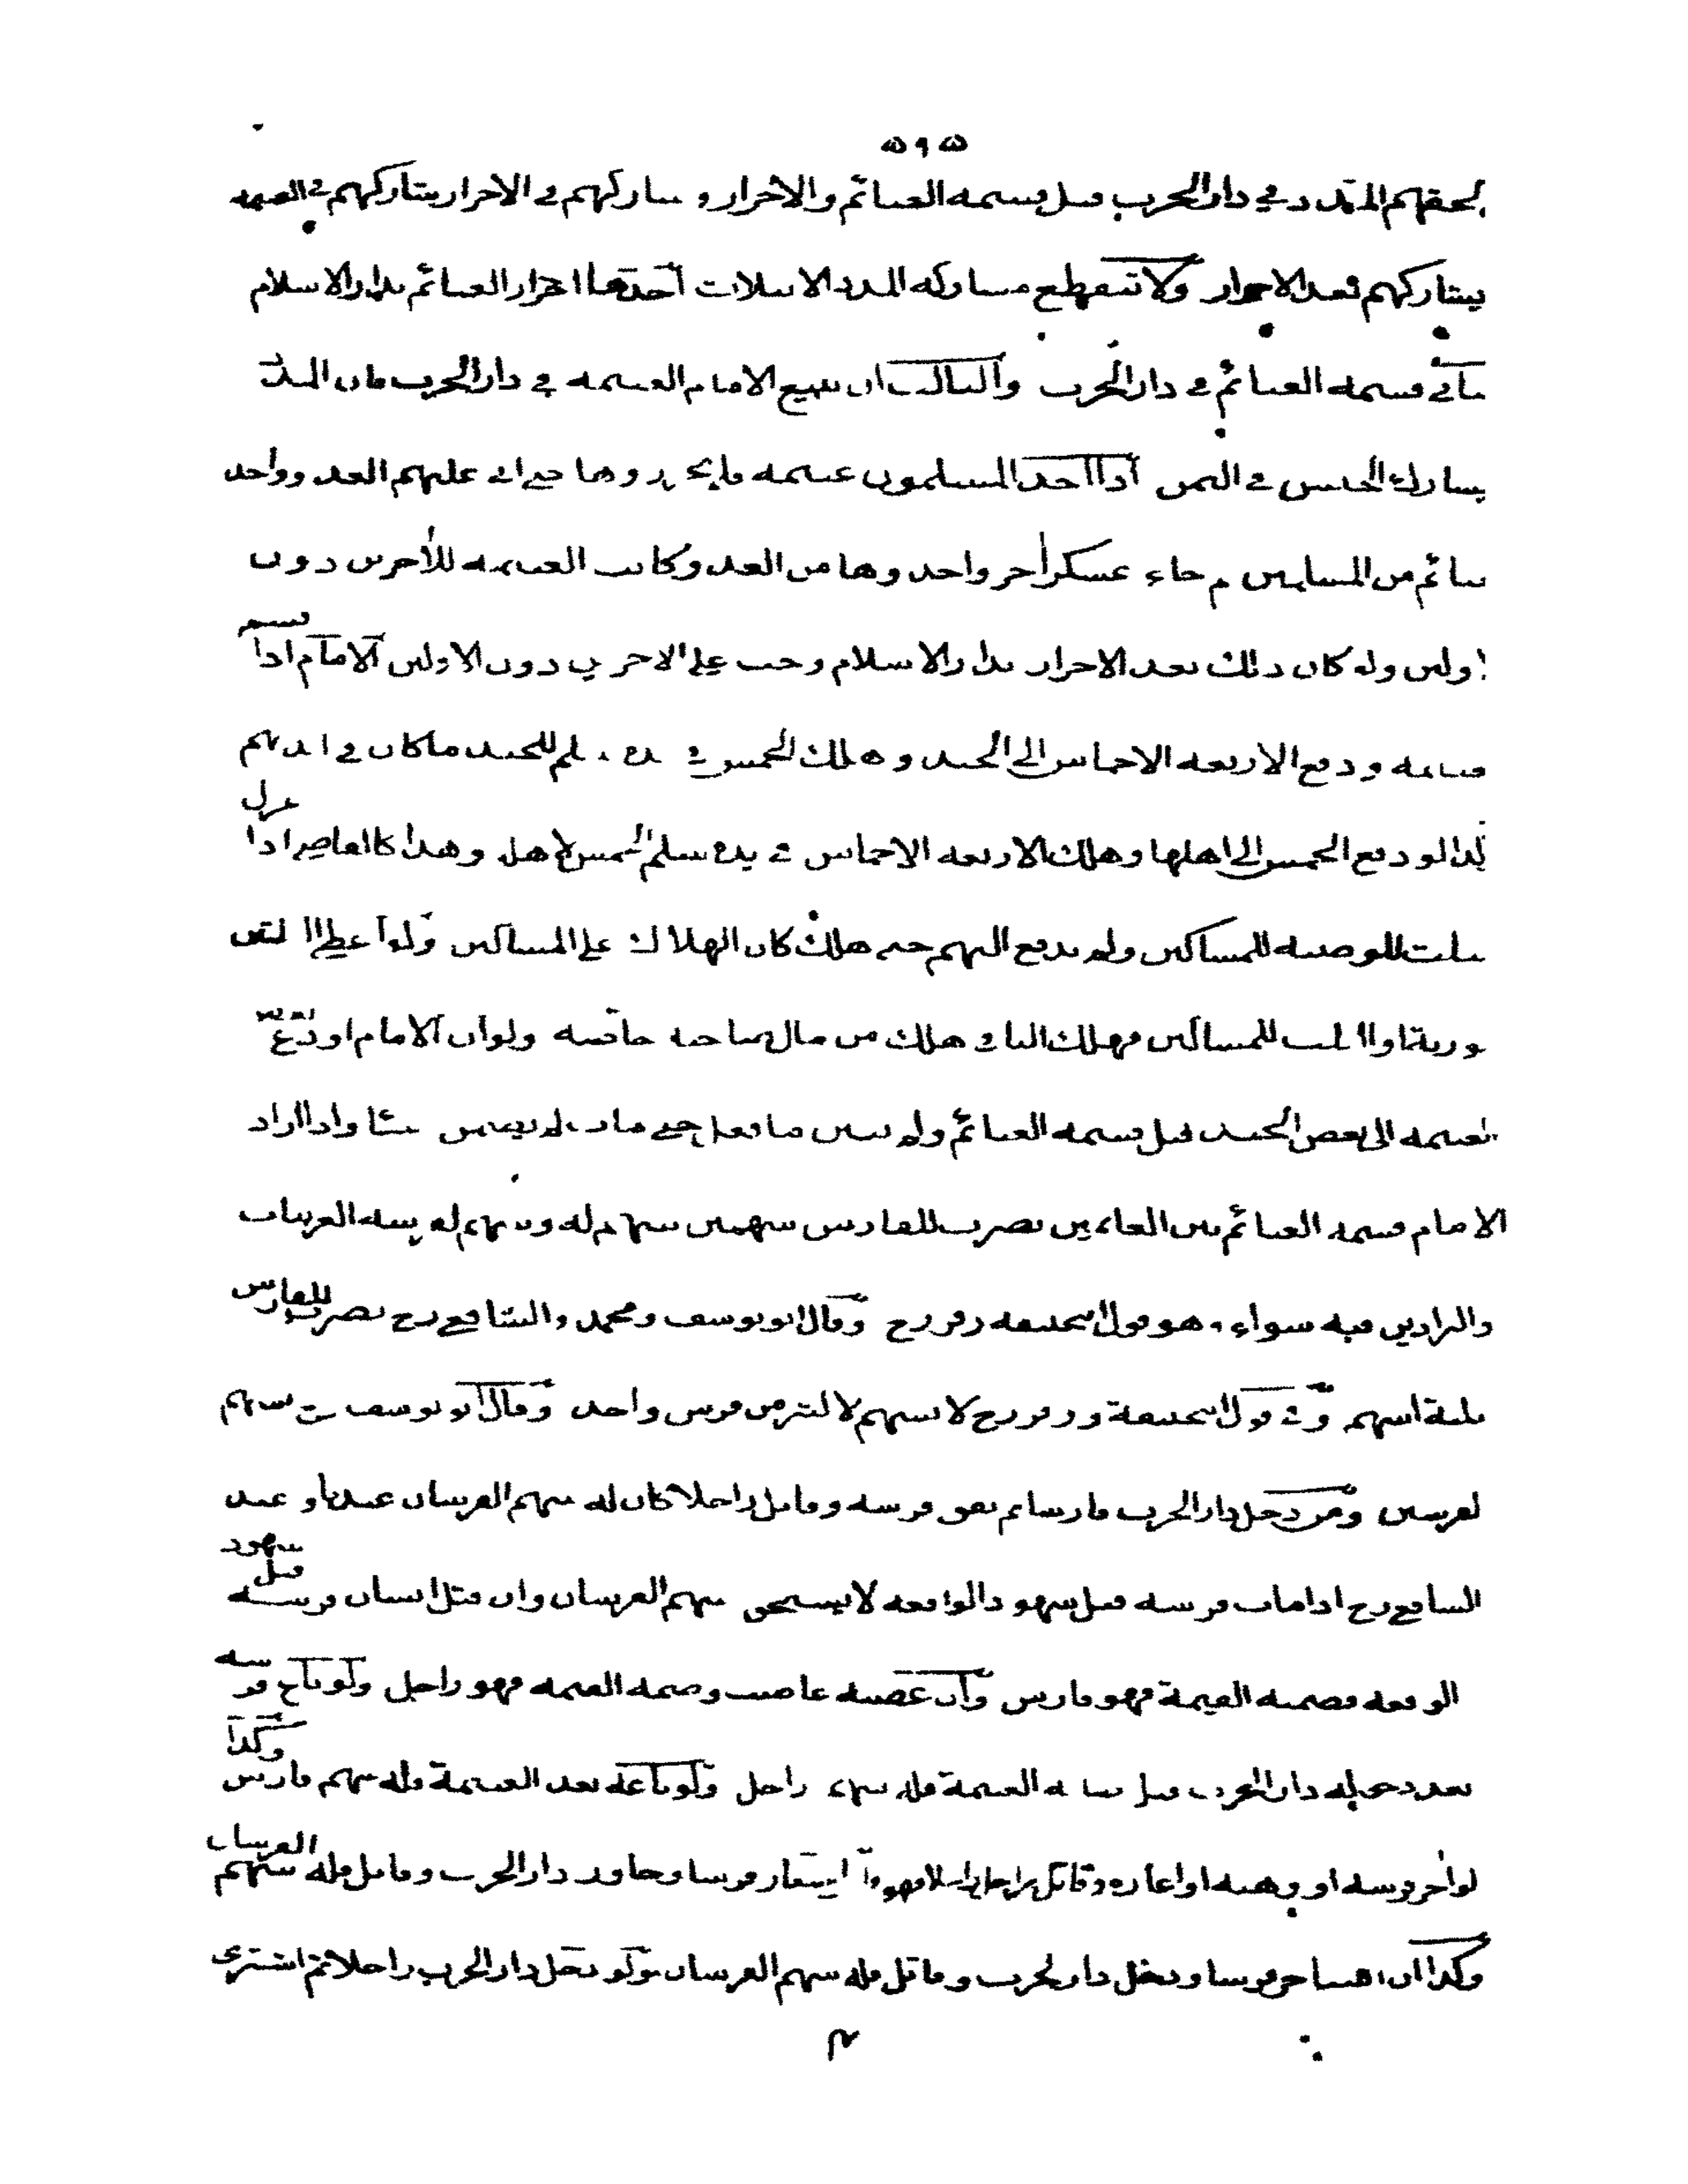 ٥٩٥
لحقهم المدد في دار الحرب قبل قسمة الغنائم والاحراز و يشاركهم في الاحراز يشاركهم في الغنيمة
يشاركهم بعد الاحراز ولا تنقطع مشاركة المدد الا بثلاث أحدها احراز الغنائم بدار الاسلام
قسمة الغنائم في دار الحرب والثالث ان يبيع الامام الغنيمة في دار الحرب فان المدد
يشارك الجيش في الثمن اذا اخذ المسلمون غنيمة فلم يحرزوها حتى غلبهم العدو واخذ
من المسلمين ثم جاء عسكر آخر واخذوها من العدو وكانت الغنيمة للآخرين دون
ولين ولو كان ذلك بعد الاحراز بدار الاسلام وجب على الآخرين دون الاولين الامام اذا قسم
ودفع الاربعة الاخماس الى الجند وهلك الخمس في يده سلم للجند ما كان في ايديهم
لو دفع الخمس الى اهلها وهلك الاربعة الاخماس في يده سلم الخمس لاهله وهذا كالقاضي اذا عزل
للوصية للمساكين ولم يدفع اليهم حتى هلك كان الهلاك على المساكين ولو اعطى الثلثين
للمساكين فهلك الباقي هلك من مال صاحبه خاصة ولو ان الامام اودع بعض
الغنيمة الى بعض الجند قبل قسمة الغنائم ولم يبين ما فعل حتى مات لم يضمن شيئا واذا اراد
الامام قسمة الغنائم بين الغانمين يضرب للفارس سهمين سهم له وسهم لفرسه العربيات
والبراذين فيه سواء وهو قول ابي حنيفة وزفر رح وقال ابو يوسف ومحمد والشافعي رح يضرب للفارس
ثلثة اسهم وفي قول ابي حنيفة وزفر رح لا يسهم لاكثر من فرس واحد وقال ابو يوسف رح يسهم
لفرسين ومن دخل دار الحرب فارسا ثم نفق فرسه وقاتل راجلا كان له سهم الفرسان عندنا وعند
الشافعي رح اذا مات فرسه قبل شهود الواقعة لا يستحق سهم الفرسان وان قتل انسان فرسه قبل شهود
الوقعة فضمنه القيمة فهو فارس وان غصبه غاصب وضمنه القيمة فهو راجل ولو باع فرسه
بعد دخوله دار الحرب قبل الغنيمة فله سهم راجل ولو باعه بعد الغنيمة فله سهم فارس وكذا
لو آجر فرسه او رهنه او اعاره وقاتل راجلا استعار فرسا وجاوز دار الحرب وقاتل فله سهم الفرسان
وكذا ان استأجر فرسا ودخل دار الحرب وقاتل فله سهم الفرسان ولو دخل دار الحرب راجلا ثم اشترى